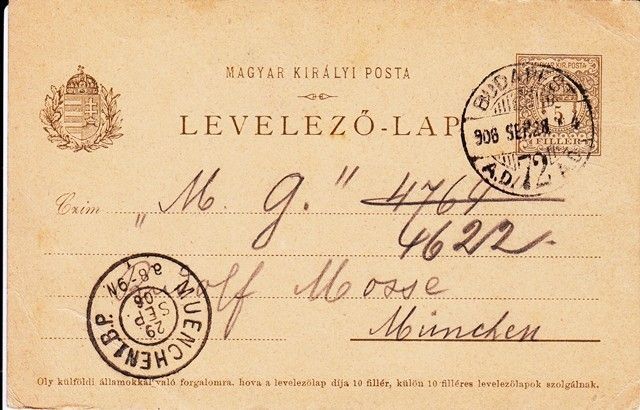 MAGYAR KIRÁLYI POSTA
LEVELEZŐ-LAP
MAGYAR KIR. POSTA
FILLÉR
BUDAPEST
908 SEP.28
72
Czim
„M. G." 4761
4622
Rudolf Mosse
München
MUENCHEN 1.B.P.
29
SEP.
08
a.8-9N.
Oly külföldi államokkal való forgalomra, hova a levelezőlap díja 10 fillér, külön 10 filléres levelezőlapok szolgálnak.